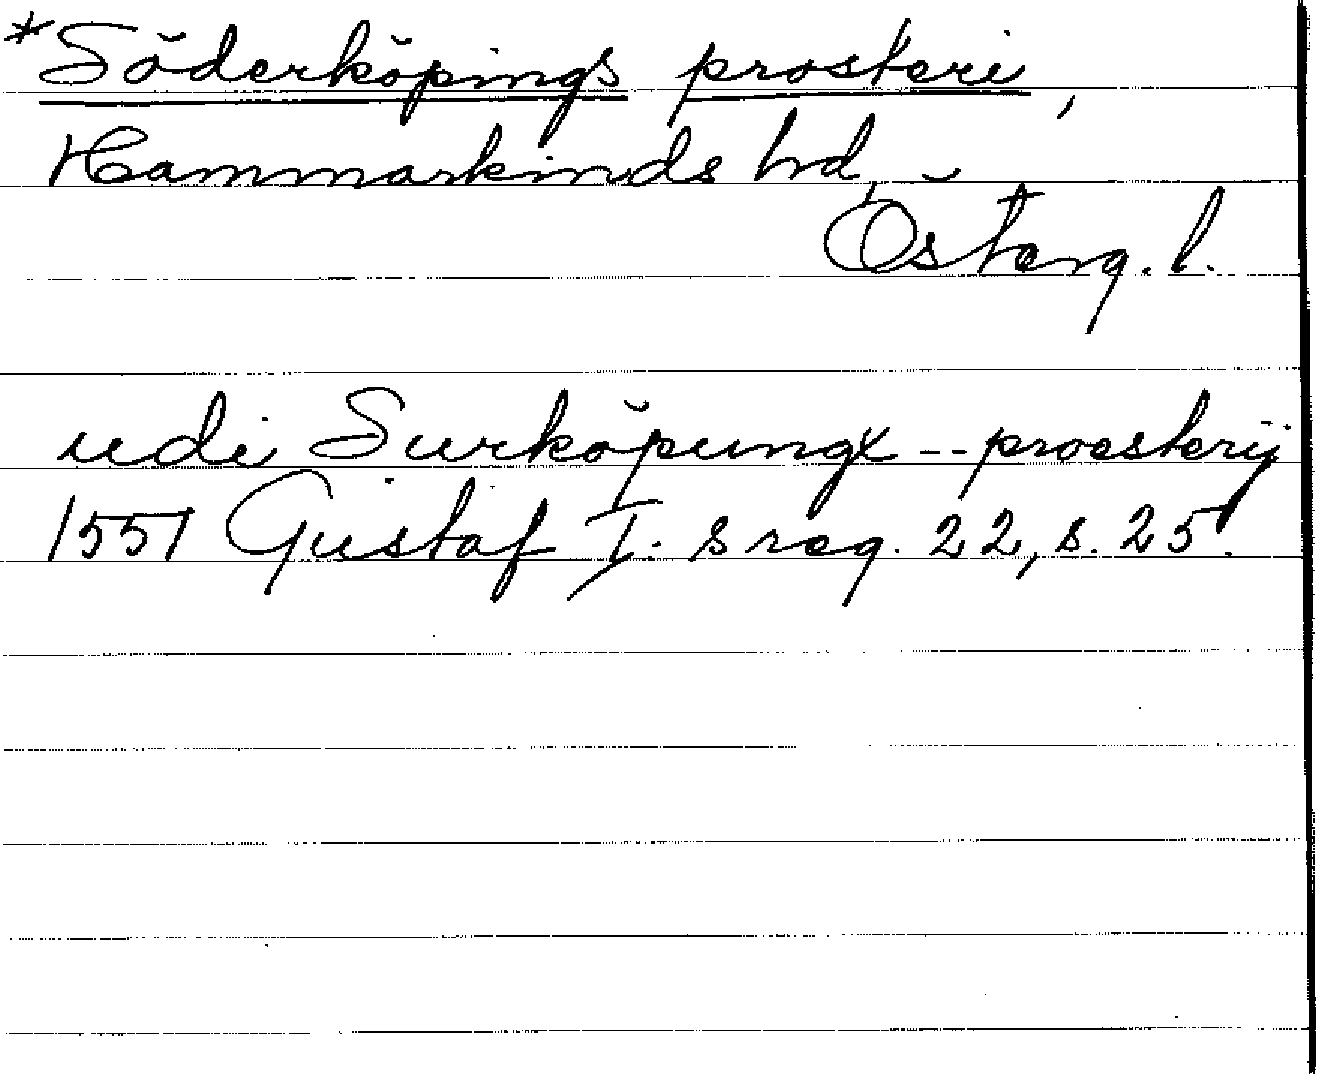 *Söderköpings prosteri,
Hammarkinds hrd,
Österg. l.
udi Surköpungx -- proesterij
1551 Gustaf I:s reg. 22, s. 25.